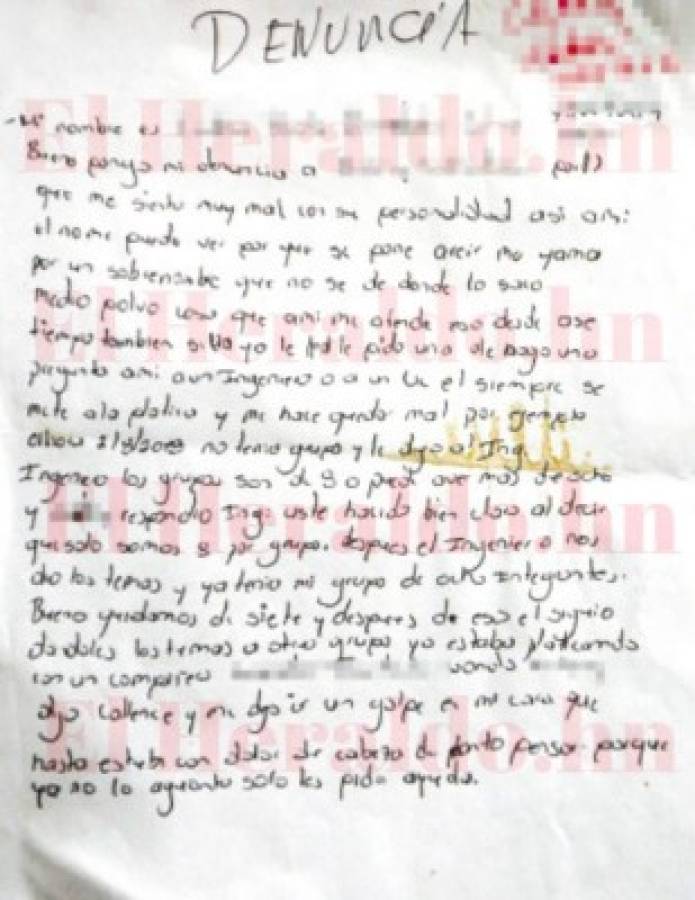 DENUNCIA
- Mi nombre es
Bueno pongo mi denuncia a
que me siento muy mal con su personalidad asi ami
el no me puede ver por que se pone a decir me yama
por un sobrenombre que no se de donde lo saco
medio polvo cosa que ami me ofende eso desde ese
tiempo tambien si yo le pido una le hago una
pregunta ami a un Ingeniero o a un Lic el siempre se
mete ala platica y me hace quedar mal por ejemplo
no tenia grupo y le dige al Ing.
Ingeniero los grupos son de 9 o puede aver mas de ocho
y respondio Ing. uste ha sido bien claro al decir
que solo somos 8 por grupo. despues el Ingeniero nos
dio los temas y ya tenia mi grupo de ocho integrantes.
Bueno quedamos de siete y despues de eso el siguio
dandoles los temas a otros grupos yo estaba platicando
con un compañero
dijo callence y me dejo ir un golpe en mi cara que
hasta estuve con dolor de cabeza de tanto pensar porque
ya no lo aguanto solo les pido ayuda.
El Heraldo.hn
El Heraldo.hn
El Heraldo.hn
El Heraldo.hn